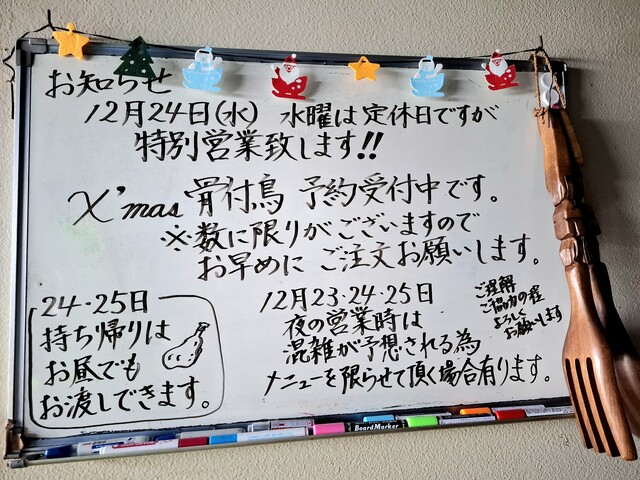 お知らせ
12月24日(水) 水曜は定休日ですが
特別営業致します!!
X'mas 骨付鳥 予約受付中です。
※数に限りがございますので
お早めに ご注文お願いします。
24・25日
持ち帰りは
お昼でも
お渡しできます。
12月23・24・25日
夜の営業時は
混雑が予想される為
メニューを限らせて頂く場合有ります。
ご理解
ご協力の程
よろしく
お願いします
BoardMarker